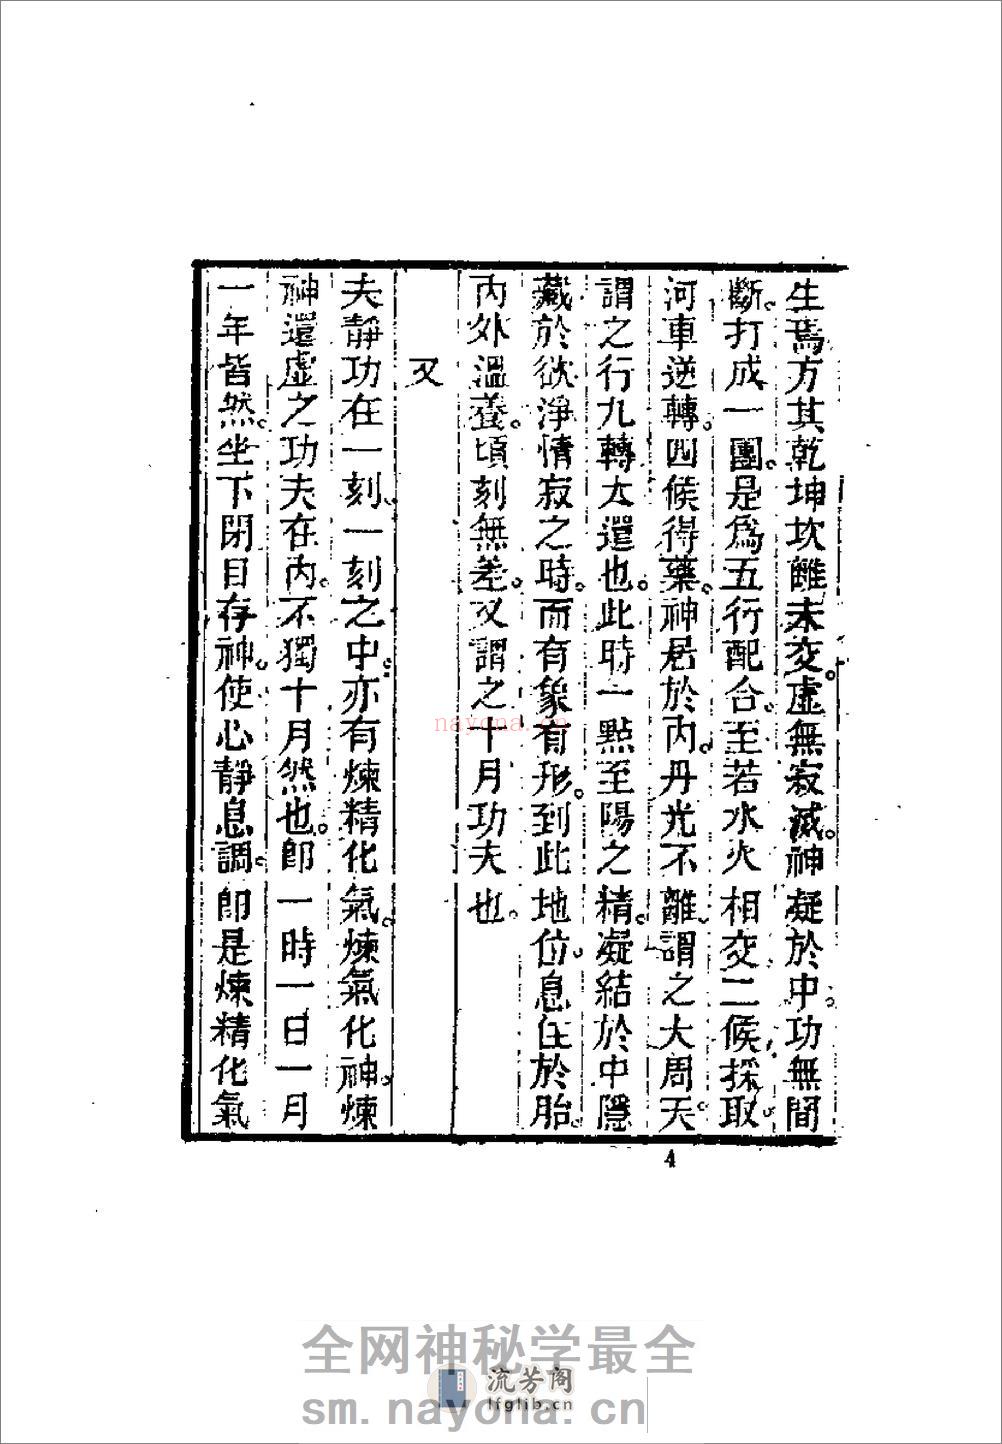 生焉方其乾坤坎離未交。虛無寂滅。神凝於中。功無間
斷。打成一團。是爲五行配合。至若水火相交二候採取
河車逆轉。四候得藥。神居於內。丹光不離、謂之大周天。
謂之行九轉大還也。此時一點至陽之精。凝結於中隱
藏於欲淨情寂之時。而有象有形。到此地位。息住於胎。
內外溫養。頃刻無差。又謂之十月功夫也。
又
夫靜功在一刻。一刻之中。亦有煉精化氣。煉氣化神。煉
神還虛之功夫在內。不獨十月然也。卽一時一日一月
一年皆然。坐下閉目存神。使心靜息調。卽是煉精化氣
4
nayona.cn
全网神秘学最全
流芳阁
lfglib.cn
sm.nayona.cn